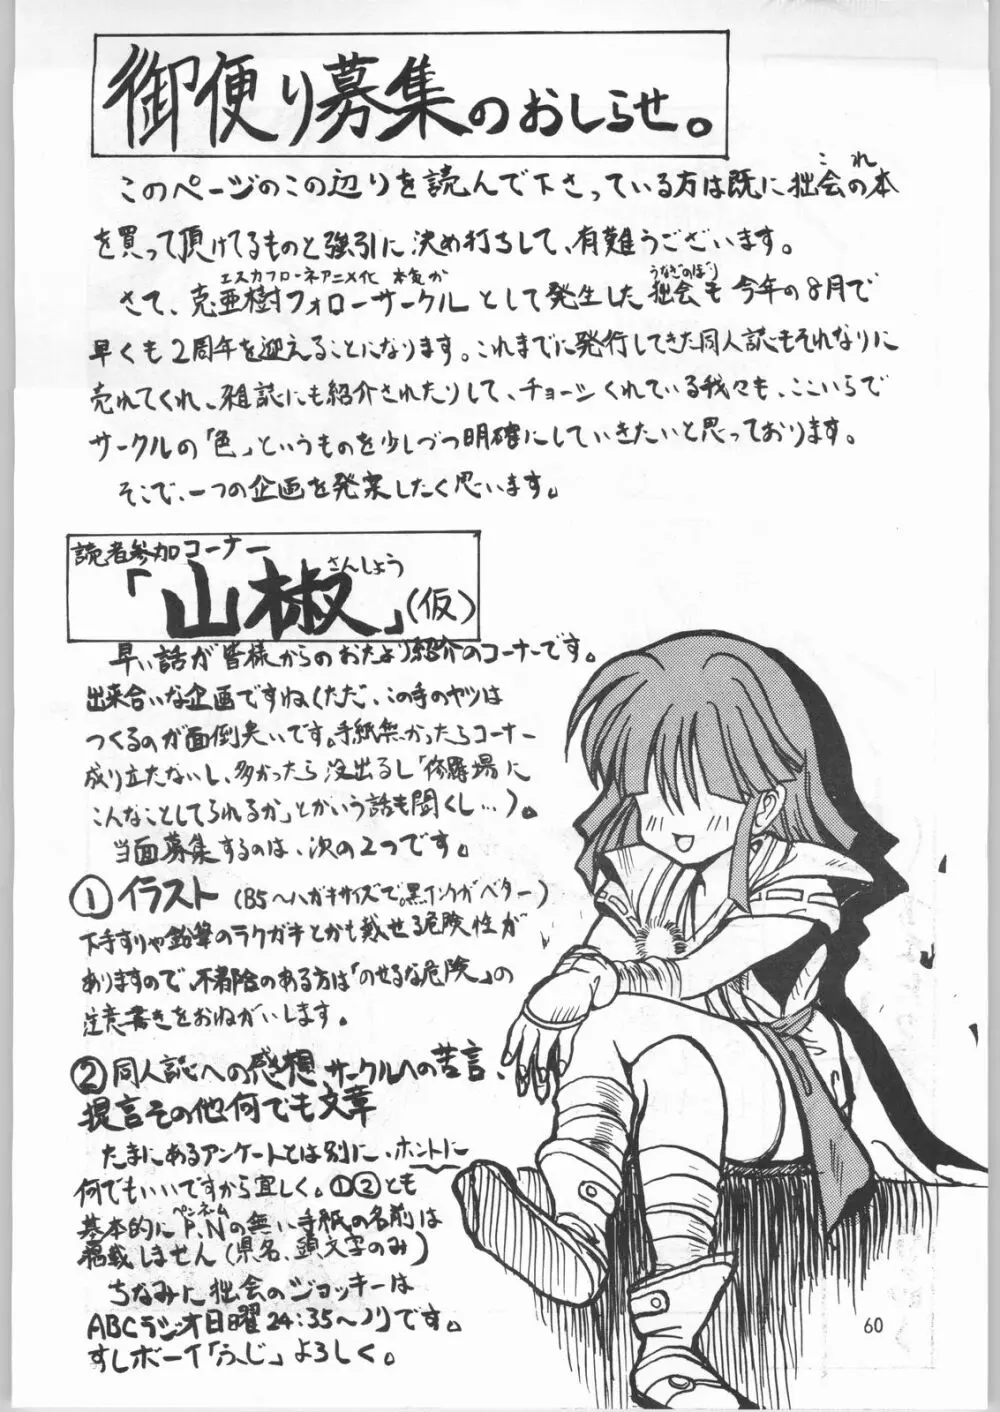 御便り募集のおしらせ。
このページのこの辺りを読んで下さっている方は既に拙会の本
これ
を買って頂けてるものと強引に決め打ちして、有難うございます。
エスカフローネアニメ化 本気か
うなぎのぼり
さて、克亜樹フォローサークルとして発生した拙会も今年の8月で
早くも2周年を迎えることになります。これまでに発行してきた同人誌もそれなりに
売れてくれ、雑誌にも紹介されたりして、チョーシくれている我々も、ここいらで
サークルの「色」というものを少しづつ明確にしていきたいと思っております。
そこで、一つの企画を発案したく思います。
読者参加コーナー
さんしょう
「山椒」(仮)
早い話が皆様からのおたより紹介のコーナーです。
出来合いな企画ですね(ただ、この手のヤツは
つくるのが面倒臭いです。手紙無かったらコーナー
成り立たないし、多かったら没出るし「修羅場に
こんなことしてられるか」とかいう話も聞くし…)。
当面募集するのは、次の2つです。
①イラスト(B5〜ハガキサイズで。黒インクがベター)
下手すりゃ鉛筆のラクガキとかも載せる危険性が
ありますので、不都合のある方は「のせるな危険」の
注意書きをおねがいします。
②同人誌への感想、サークルへの苦言、
提言その他何でも文章
たまにあるアンケートとは別に、ホントに
何でもいいですから宜しく。①②とも
ペンネーム
基本的にP.Nの無い手紙の名前は
掲載しません(県名、頭文字のみ)
ちなみに拙会のジョッキーは
ABCラジオ日曜24:35〜ノリです。
すしボーイ「ふじ」よろしく。
60